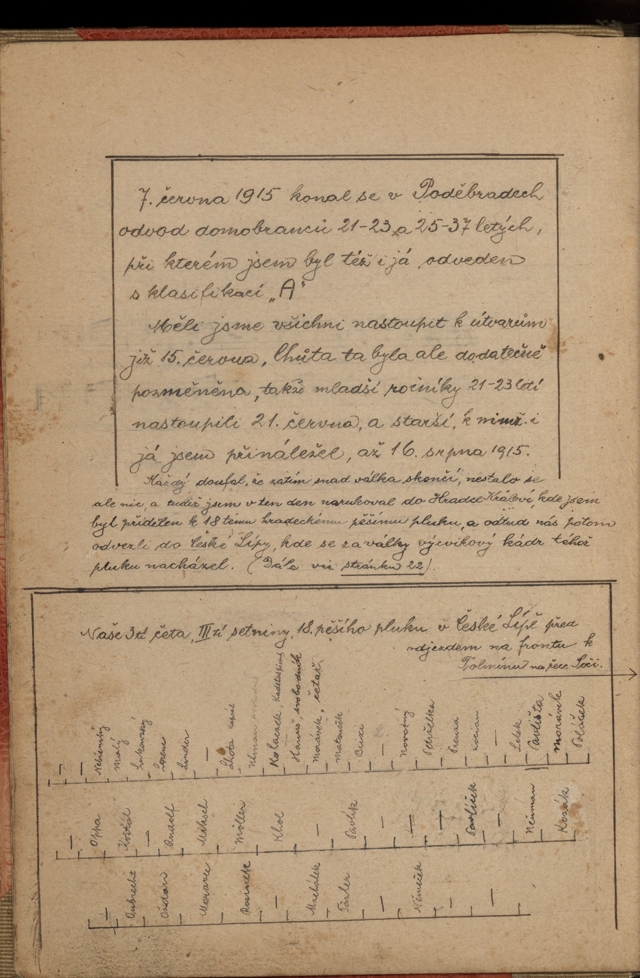 7. června 1915 konal se v Poděbradech
odvod domobranců 21-23 a 25-37 letých,
při kterém jsem byl též i já odveden
s klasifikací „A"
Měli jsme všichni nastoupit k útvarům
již 15. června, lhůta ta byla ale dodatečně
pozměněna, takže mladší ročníky 21-23 ldí
nastoupili 21. června, a starší, k nimž i
já jsem přináležel, až 16. srpna 1915.
Každý doufal, že zatím snad válka skončí, nestalo se
ale nic, a tudíž jsem v ten den narukoval do Hradce Králové, kde jsem
byl přidělen k 18 temu hradeckému pěšímu pluku, a odtud nás potom
odvezli do České Lípy, kde se za války výcvikový kádr téhož
pluku nacházel. (Dále viz stránku 22)
Naše 3tí četa, III tí setniny, 18. pěšího pluku v České Lípě před
odjezdem na frontu k
Tolmínu na řece Soči.
Malý
Linder
Kolaczek
Hanuš, svobodník
Morávek, četař
Matouček
Novotný
Petržilka
Pavlišta
Morávek
Poláček
Oppa
Rudolf
Möller
Khol
Pavlík
Pavlíček
Neiman
Kozák
Moravec
Michálek
Němeček